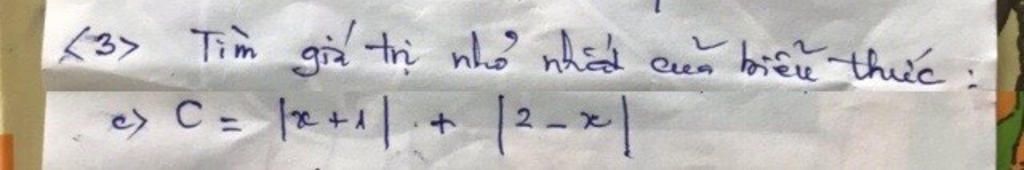 <3> Tìm giá trị nhỏ nhất của biểu thức :
c) C = |x + 1| + |2 - x|